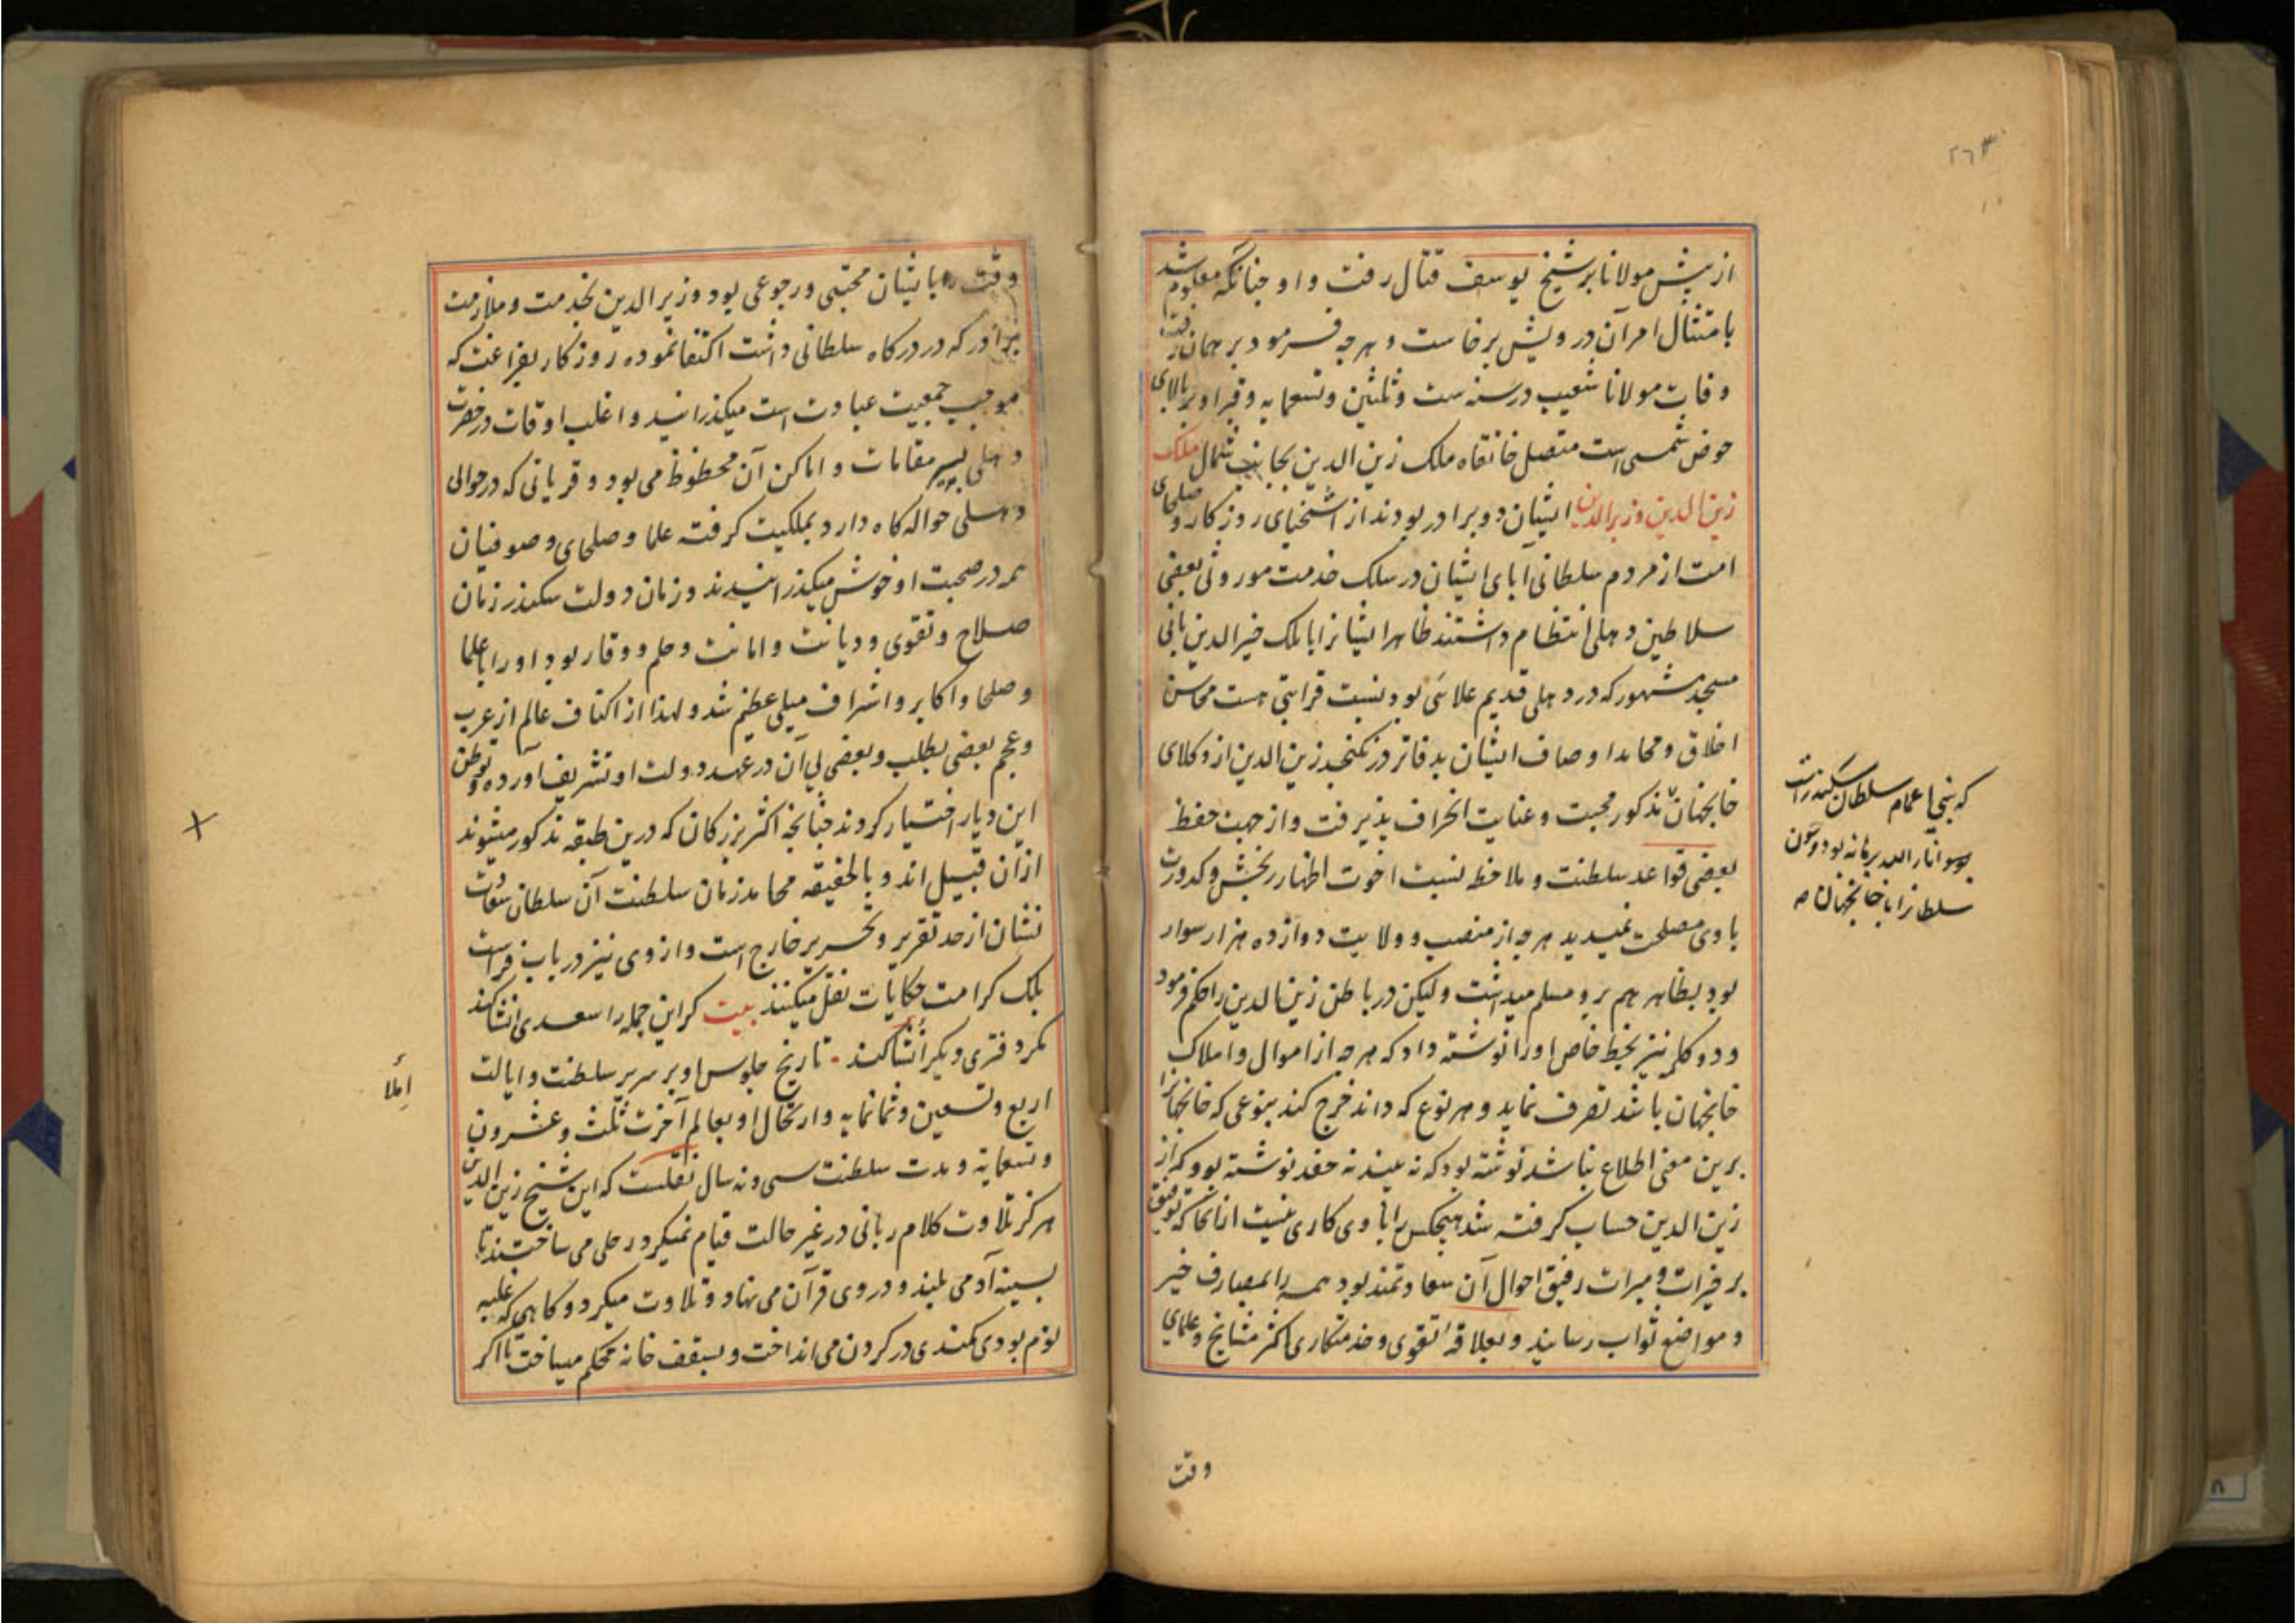 ۲۶۳
از پیش مولانا بر شیخ یوسف قتال رفت و او چنانکه معلوم شد
بامتثال امر آن درویش برخاست و هرچه فرمود بر همان رفت
وفات مولانا شعیب در سنه ست و ثلثین و تسعمایه و قبر او بر بالای
حوض شمسی است متصل خانقاه ملک زین الدین بجانب شمال ملک
زین الدین وزیر الدین ایشان دو برادر بودند از اسخیای روزکار و صلحای
امت از مردم سلطانی آبای ایشان در سلک خدمت موروثی بعضی
سلاطین دهلی انتظام داشتند ظاهرا ایشانرا با ملک خیر الدین بانی
مسجد مشهور که در دهلی قدیم علائی بود نسبت قرابتی هست محاسن
اخلاق و محامد اوصاف ایشان بدفاتر در نکنجد زین الدین از وکلای
خانجهان مذکور محبت و عنایت انحراف پذیرفت و از جهت حفظ
بعضی قواعد سلطنت و ملاحظه نسبت اخوت اظهار رنجش و کدورت
با وی مصلحت نمیدید هرچه از منصب و ولایت دوازده هزار سوار
بود بظاهر هم برو مسلم میداشت ولیکن در باطن زین الدین را حکم فرمود
و دو کلمه نیز بخط خاص او را نوشته داد که هرچه از اموال و املاک
خانجهان باشد تصرف نماید و هر نوع که داند خرج کند بنوعی که خانجهانرا
برین معنی اطلاع نباشد نوشته بود که نه بیند نه حقد نوشته بود که از
زین الدین حساب کرفته شد هیچکس را با وی کاری نیست ازانجا که توفیق
بر خیرات و مبرات رفیق احوال آن سعادتمند بود همه را بمصارف خیر
و مواضع ثواب رسانید و بعلاقه تقوی و خدمتکاری اکثر مشایخ و علمای
که بنی اعمام سلطان سکندر است
بود و چون
سلطانرا با خانجهان
وقت
وقت را بایشان محبتی و رجوعی بود وزیر الدین بخدمت و ملازمت
برادر که در درکاه سلطانی داشت اکتفا نموده روزکار بفراغت که
موجب جمعیت عبادت است میکذرانید و اغلب اوقات در حضرت
دهلی بسیر مقامات و اماکن آن محظوظ می بود و قریاتی که در حوالی
دهلی حواله کاه دارد بملکیت کرفته علما و صلحای و صوفیان
همه در صحبت او خوش میکذرانیدند و زمان دولت سکندر زمان
صلاح و تقوی و دیانت و امانت و حلم و وقار بود او را با علما
و صلحا و اکابر و اشراف میلی عظیم شد و لهذا از اکناف عالم از عرب
و عجم بعضی بطلب و بعضی بی آن در عهد دولت او تشریف آورده توطن
این دیار اختیار کردند چنانچه اکثر بزرکان که درین طبقه مذکور میشوند
ازان قبیل اند و بالحقیقه محامد زمان سلطنت آن سلطان سعادت
نشان از حد تقریر و تحریر خارج است و از وی نیز در باب فراست
بلک کرامت حکایات نقل میکنند بیت کر این جمله را سعدی انشا کند
مکر دفتری دیکر انشا کند ۰ تاریخ جلوس او بر سریر سلطنت و ایالت
اربع و تسعین و ثمانمایه و ارتحال او بعالم آخرت ثلث و عشرون
و تسعمایه و مدت سلطنت سی و نه سال نقلست که این شیخ زین الدین
هرکز تلاوت کلام ربانی در غیر حالت قیام نمیکرد رحلی می ساختند تا
بسینه آدمی بلند و در وی قرآن می نهاد و تلاوت میکرد و کاهی که غلبه
نوم بودی کمندی در کردن می انداخت و بسقف خانه محکم میساخت تا اکر
املا